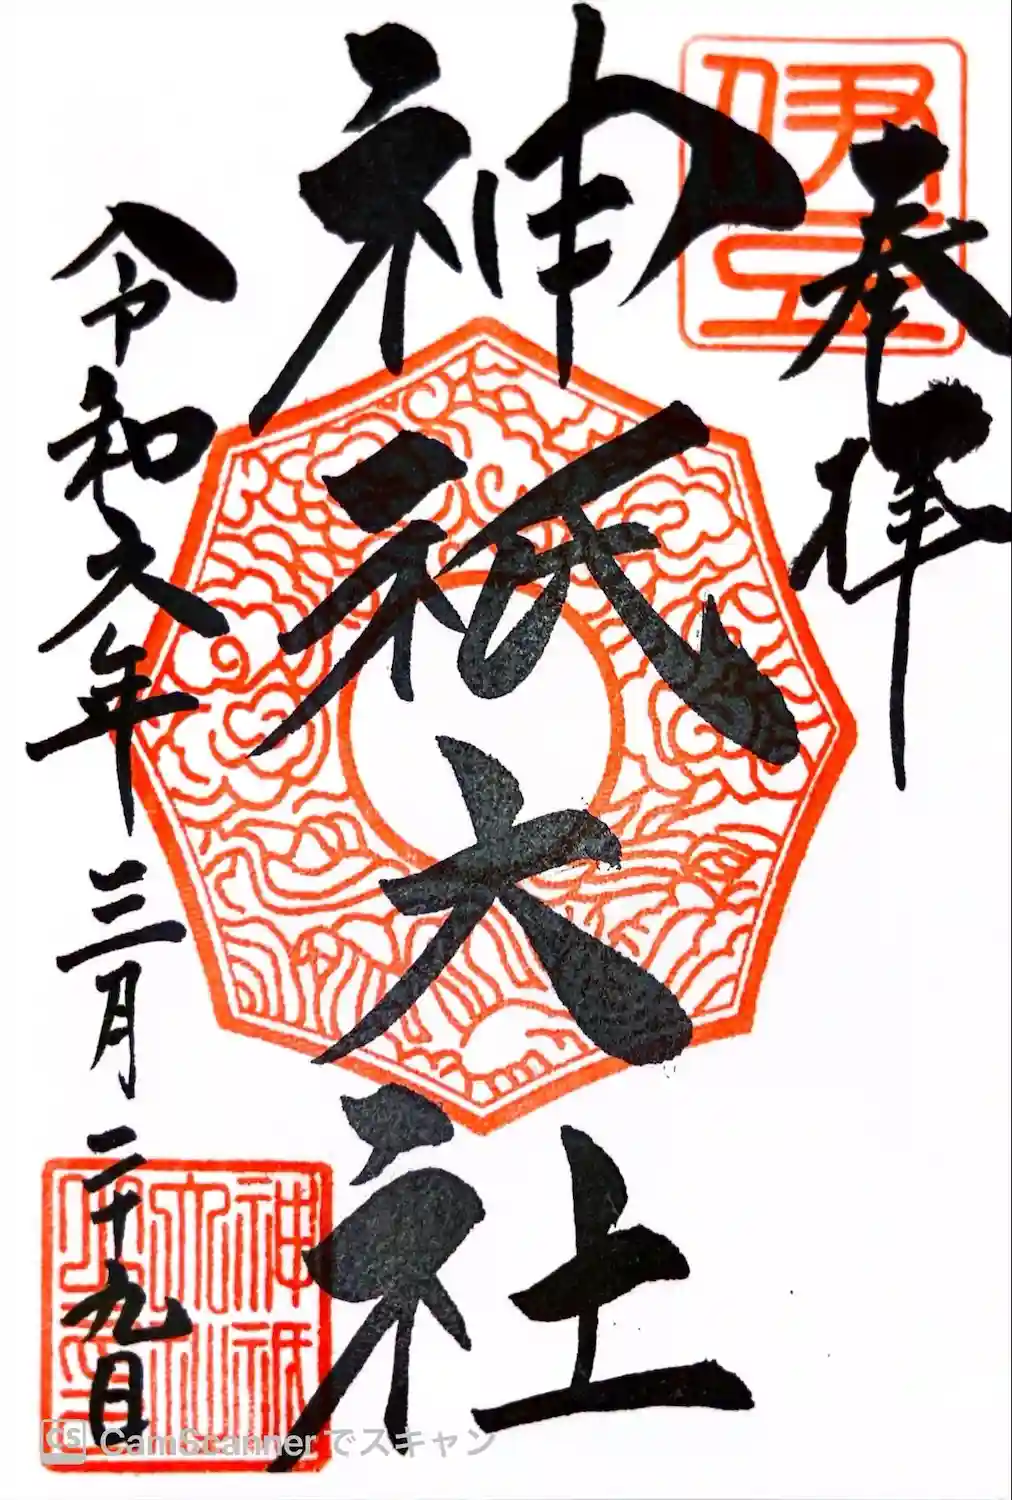 奉拝
伊豆
神祇大社
令和六年三月二十九日
神祇
CS CamScanner でスキャン